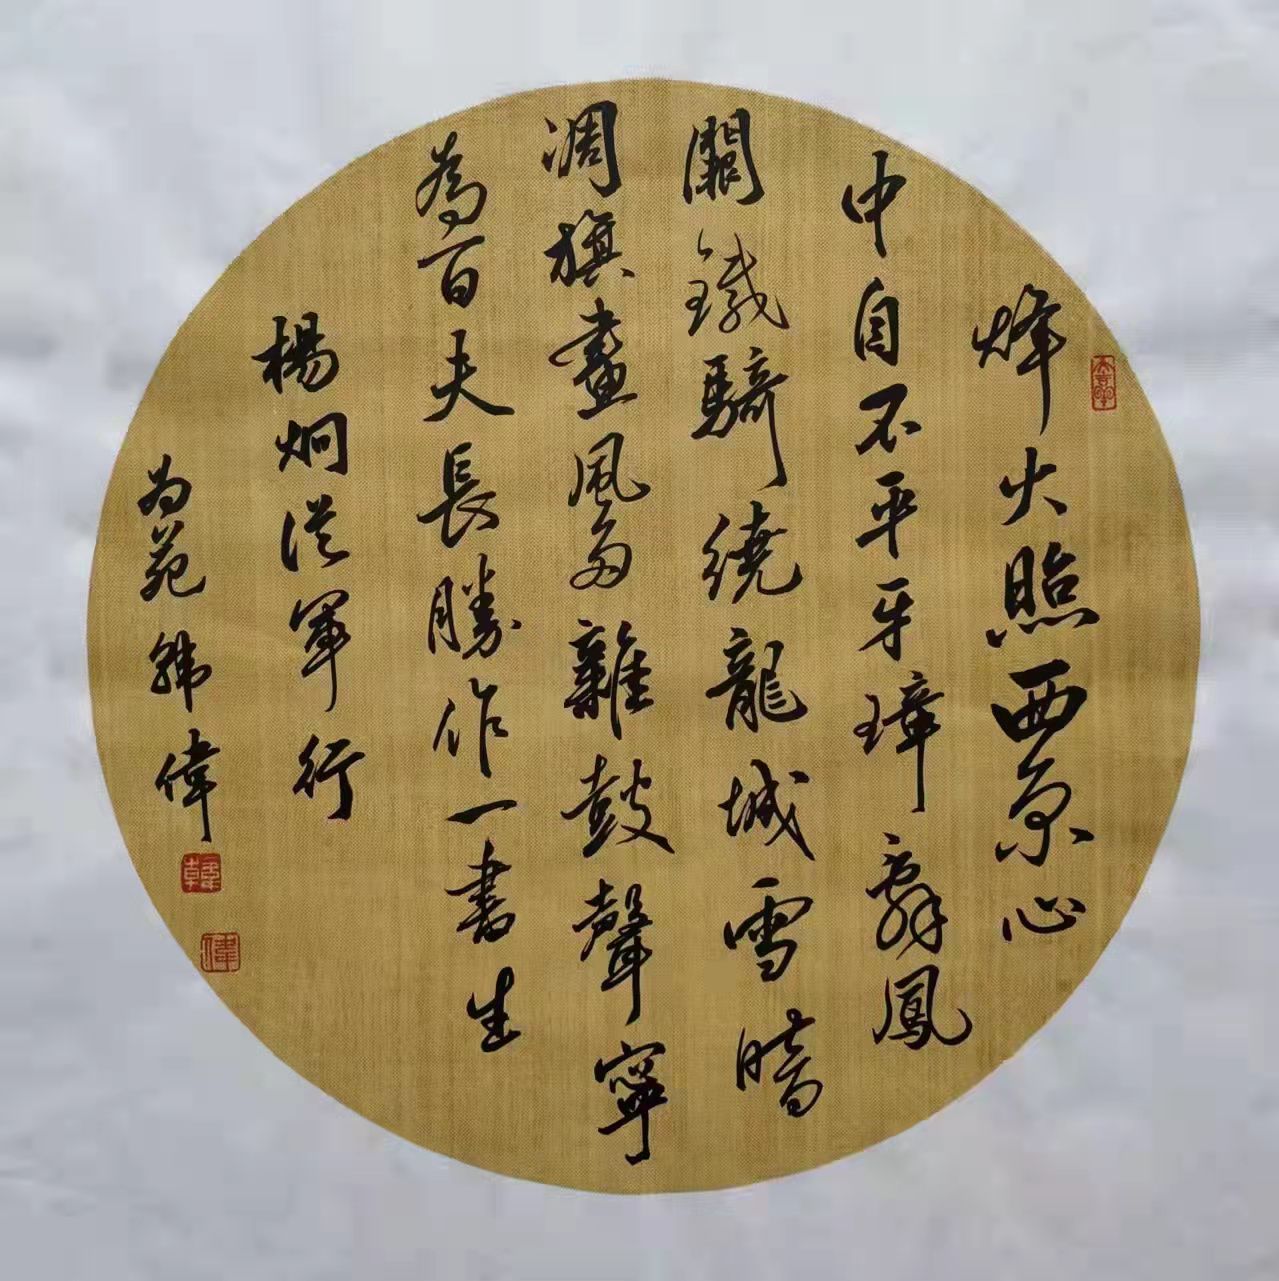 烽火照西京心
中自不平牙璋辭鳳
闕鐵騎繞龍城雪暗
凋旗畫風多雜鼓聲寧
為百夫長勝作一書生
楊炯從軍行
為苑韓偉
韓
偉